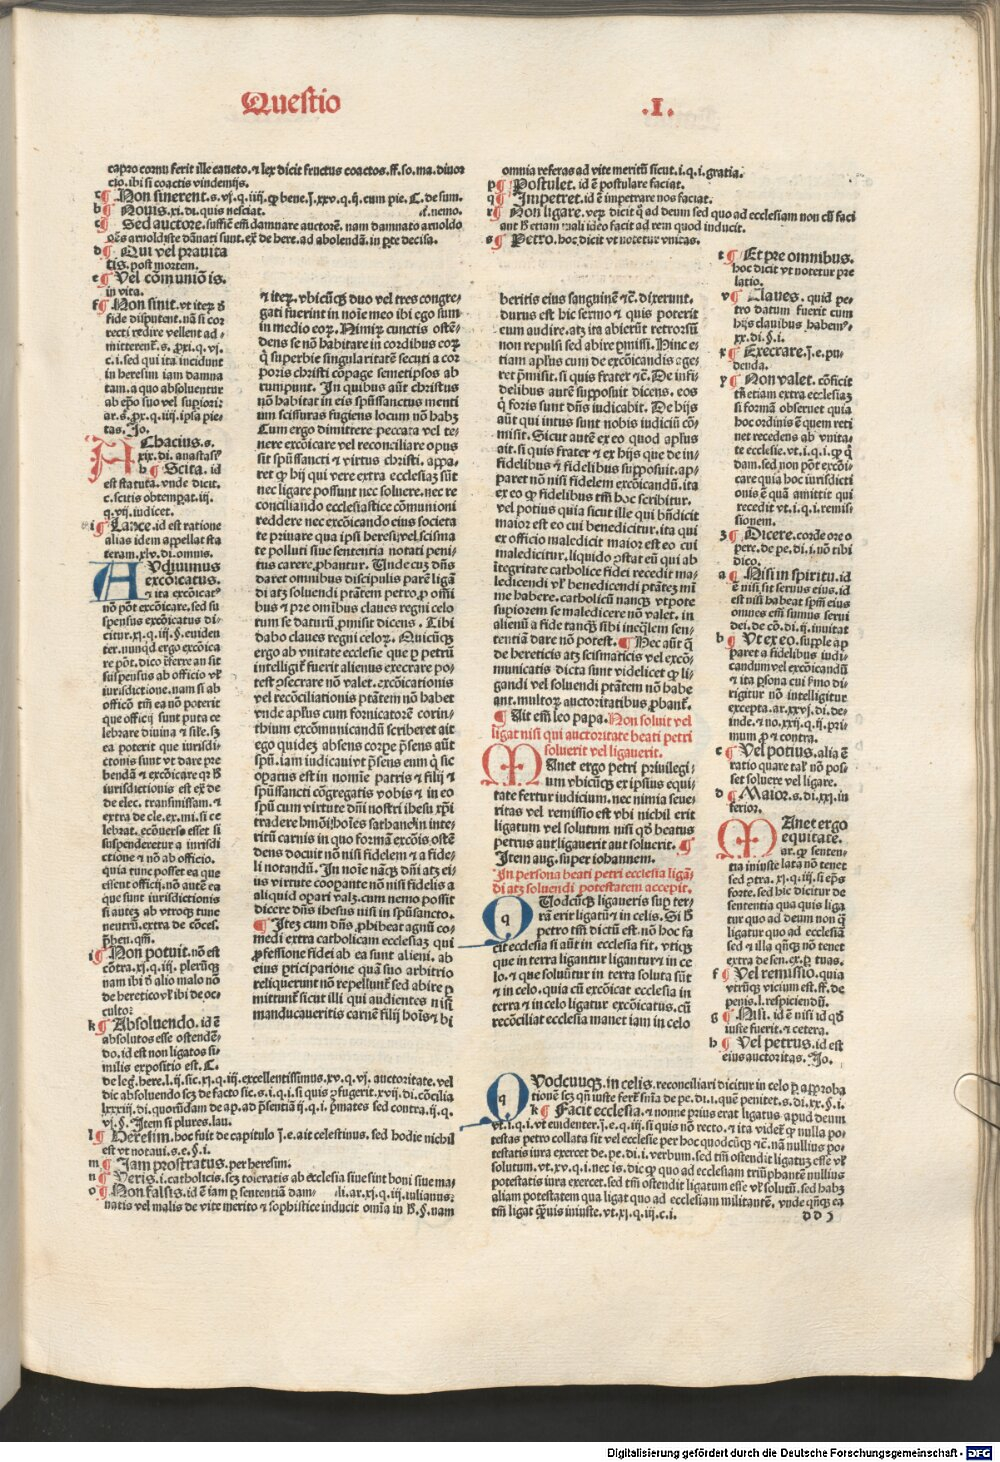 Questio .I.
capro cornu ferit ille caueto. ⁊ lex dicit fructus coactos. ff. so. ma. diuor
cio. ibi si coactis vindemijs.
c ¶ Non sinerent. s. vj. q. iiij. ꝙ bene. j. xxv. q. ij. cum pie. C. de sum.
b ¶ Nouis. xi. di. quis nesciat. s. nemo.
c ¶ Sed auctore. suffic̄ em̄ damnare auctorē. nam damnato arnoldo
oēs arnoldiste dānati sunt. ex̄ de here. ad abolendā. in p̄te decisa.
d ¶ Qui vel prauita
tis. post mortem.
e ¶ Vel cōmuniōis.
in vita.
f ¶ Non sinit. vt iteꝝ d̄
fide disputent. nā si cor
recti redire vellent ad-
mitterent᷑. s. ꝓxi. q. vj.
c. i. sed qui ita incidunt
in heresim iam damna
tam. a quo absoluentur
ab ep̄o suo vel superi:
ar. s. ꝓx. q. iiij. ipsa pie-
tas. Jo.
Achacius. s.
xix. di. anastasiꝰ
h ¶ Scita. id
est statuta. vnde dicit.
c. scitis obtemperat. iij.
q. vij. iudicet.
i ¶ Lance. id est ratione
alias idem appellat sta
teram. xlv. di. omnis.
Audiuimus
excōicatus.
⁊ ita excōicatꝰ
nō pōt excōicare. sed su
spensus excōicatus di-
citur. xj. q. iij. §. euiden
ter. nunqd ergo excōica
re pōt. dico r̄ferre an sit
suspensus ab officio vl̓
iurisdictione. nam si ab
officō tm̄ ea nō poterit
que officij sunt puta ce
lebrare diuina ⁊ sil̓e. sꝫ
ea poterit que iurisdi-
ctonis sunt vt dare pre
bendā ⁊ excōicare qꝛ h̓
iurisdictionis est ex̄ de
de elec. transmissam. ⁊
extra de cle. ex. mi. si ce
lebrat. ecōuerso esset si
suspenderetur a iurisdi
ctione ⁊ nō ab officio.
quia tunc posset ea que
essent officij. nō autē ea
que sunt iurisdictionis
si autē ab vtroqꝫ tunc
neutrū. extra de cōces.
p̄ben. qm̄.
i ¶ Non potuit. nō est
cōtra. xj. q. iij. pleruqꝫ
nam ibi d̄ alio malo nō
de heretico vl̓ ibi de oc-
cultoꝛ
k ¶ Absoluendo. id ē
absolutos esse ostendē-
do. id est non ligatos si-
milis expositio est. C.
de leg̓. here. l. ij. sic. xj. q. iij. excellentissimus. xv. q. vj. auctoritate. vel
dic absoluendo sꝫ de facto sic. s. i. q. i. quis ꝓfugerit. xvij. di. cōcilia
lxxxiij. di. quorūdam de ap. ad p̄sentiā ij. q. i. pͥmates sed contra. ij. q.
vj. §. Item si plures. lau.
l ¶ Heresim. hoc fuit de capitulo j. e. ait celestinus. sed hodie nichil
est vt notaui. s. e. §. i.
m ¶ Jam prostratus. per heresim.
n ¶ Veris. i. catholicis. sꝫ toleratis ab ecclesia siue sint boni siue ma-
o ¶ Non falsis. id ē iam ꝑ sententiā dam- li. ar. xj. q. iij. iulianus.
natis vel malis de vite merito ⁊ sophistice inducit om̄ia in h̓. §. nam
⁊ iteꝝ. vbicūqꝫ duo vel tres congre-
gati fuerint in noīe meo ibi ego sum
in medio eoꝝ. Nimiꝝ cunctis ostē-
dens se nō habitare in cordibus eoꝝ
q̄ superbie singularitatē secuti a cor
poris christi cōpage semetipsos ab
rumpunt. In quibus aūt christus
nō habitat in eis spūssanctus menti
um scissuras fugiens locum nō habꝫ
Cum ergo dimittere peccata vel te-
nere excōicare vel reconciliare opus
sit spūssancti ⁊ virtus christi. appa-
ret ꝙ hij qui vere extra ecclesiaꝫ sūt
nec ligare possunt nec soluere. nec re
conciliando ecclesiastice cōmunioni
reddere nec excōicando eius societa
te priuare qua ipsi heresi vel scisma
te polluti siue sententia notati peni
tus carere ꝓbantur. Vnde cuꝫ dn̄s
daret omnibus discipulis parē ligā
di atqꝫ soluendi ptātem petro ꝓ oīni
bus ⁊ pre omībus claues regni celo
rum se daturū ꝓmisit dicens. Tibi
dabo claues regni celoꝝ. Quicūqꝫ
ergo ab vnitate ecclesie que ꝑ petrū
intelligit᷑ fuerit alienus execrare po-
test ꝯsecrare nō valet. excōicationis
vel recōciliationis ptātem nō habet
vnde apl̓us cum fornicatorē corin-
thium excōmunicandū scriberet ait
ego quideꝫ absens corpe p̄sens aūt
spū. iam iudicaui vt p̄sens eum q̄ sic
opatus est in nomīe patris ⁊ filij ⁊
spūssancti cōgregatis vobis ⁊ in eo
spū cum virtute dn̄i nostri ihesu xp̄i
tradere hmōi hoīes sathane in inte-
ritū carnis in quo formā excōis ostē
dens docuit nō nisi fidelem ⁊ a fide-
li notandū. In noīe nāqꝫ dn̄i atqꝫ ei-
us virtute coopante nō nisi fidelis a
aliquid opari valꝫ. cum nemo possit
dicere dn̄s ihesus nisi in spūsancto.
¶ Iteꝫ cum dn̄s ꝓhibeat agnū co-
medi extra catholicam ecclesiaꝫ qui
ꝓfessione fidei ab ea sunt alieni. ab
eius ꝑticipatione quā suo arbitrio
reliquerunt nō repellunt᷑ sed abire ꝑ
mittunt᷑ sicut illi qui audientes nisi
manducaueritis carnē filij hoīs ⁊ bi
omnia referas ad vite meritū sicut. i. q. i. gratia.
p ¶ Postulet. id ē postulare faciat.
q ¶ Impetret. id ē impetrare nos faciat.
r ¶ Non ligare. veꝝ dicit q̄ ad deum sed quo ad ecclesiam non cū faci
ant h̓ etiam mali ideo facit ad rem quod inducit.
s ¶ Petro. hoc dicit vt notetur vnitas.
beritis eius sanguinē ⁊c̄. dixerunt.
durus est hic sermo ⁊ quis poterit
eum audire. atqꝫ ita abierūt retrorsū
non repulsi sed abire ꝑmissi. Hinc e-
tiam apl̓us cum de excōicandis ageret
ret p̄misit. si quis frater ⁊c̄. De infi-
delibus autē supposuit dicens. eos
q̄ foris sunt dn̄s iudicabit. De hijs
aūt qui intus sunt nobis iudiciū cō-
misit. Sicut autē ex eo quod apl̓us
ait. si quis frater ⁊ ex hijs que de in-
fidelibus ⁊ fidelibus supposuit. ap-
paret nō nisi fidelem excōicandū. ita
ex eo ꝙ fidelibus tm̄ hoc scribitur.
vel potius quia sicut ille qui bn̄dicit
maior est eo cui benedicitur. ita qui
ex officio maledicit maior est eo cui
maledicitur. liquido ꝯstat eū qui ab
ītegritate catholice fidei recedit ma-
ledicendi vl̓ benedicendi ptātez mī
me habere. catholicū nanqꝫ vtpote
supiorem se maledicere nō valet. in
alienū a fide tanqꝫ sibi īeq̄lem sen-
tentiā dare nō potest. ¶ Hec aūt q̄
de hereticis atqꝫ scismaticis vel excō-
municatis dicta sunt videlicet ꝙ li-
gandi vel soluendi ptātem nō habe
ant. multoꝝ auctoritatibus ꝓbant᷑.
¶ Ait em̄ leo papa. Non soluit vel
ligat nisi qui auctoritate beati petri
soluerit vel ligauerit.
Manet ergo petri priuilegi-
um vbicūqꝫ ex ipsius equi-
tate fertur iudicium. nec nimia seue-
ritas vel remissio est vbi nichil erit
ligatum vel solutum nisi qd̓ beatus
petrus aut ligauerit aut soluerit. ¶
Item aug. super iohannem.
In persona beati petri ecclesia ligā
di atqꝫ soluendi potestatem accepit.
Quodcūqꝫ ligaueris sup̄ ter-
rā erit ligatū ⁊ in celis. Si h̓
petro tm̄ dictū est. nō hoc fa
cit ecclesia si aūt in ecclesia fit. vtiqꝫ
que in terra ligantur ligantur in ce
lo. ⁊ que soluūtur in terra soluta sūt
⁊ in celo. quia cū excōicat ecclesia in
terra ⁊ in celo ligatur excōicatus. cū
recōciliat ecclesia manet iam in celo
t ¶ Et pre omnibus.
hoc dicit vt notetur pre
latio.
v ¶ Claues. quid pe-
tro datum fuerit cum
hijs clauibus habem̄ꝰ.
xx. di. §. i.
x ¶ Execrare. j. e. pu-
denda.
y ¶ Non valet. cōficit
tn̄ etiam extra ecclesiaꝫ
si formā obseruet quia
hoc ordinis ē quem reti
net recedens ab vnita-
te ecclesie. vt. i. q. i. ꝙ q̄
dam. sed non pōt excōi-
care quia hoc iurisdicti
onis ē quā amittit qui
recedit vt. i. q. i. remis-
sionem.
z ¶ Dicere. corde ore o
pere. de pe. di. i. nō tibi
dico.
a ¶ Nisi in spiritu. id
ē nisi sit seruus eius. id
est nisi habeat spm̄ eius
omnes em̄ sumus serui
dei. de cō. di. ij. inuitat
b ¶ Vt ex eo. supple ap
paret a fidelibus iudi-
candum vel excōicandū
⁊ ita ꝑsona cui sermo di
rigitur nō intelligitur
excepta. ar. xxvj. di. de-
inde. ⁊ no. xxij. q. ij. pri-
mum ꝓ ⁊ contra.
c ¶ Vel potius. alia ē
ratio quare tal̓ nō pos-
set soluere vel ligare.
d ¶ Maior. s. di. xxj. in
ferior.
Manet ergo
equitate.
ar. ꝙ senten-
tia iniuste lata nō tenet
sed ꝯtra. xj. q. iij. si ep̄s
forte. sed hic dicitur de
sententia qua quis liga
tur quo ad deum non q̄
ligatur quo ad ecclesiā
sed ⁊ illa qn̄qꝫ nō tenet
extra de sen. ex. ꝑ tuas.
f ¶ Vel remissio. quia
vtrūqꝫ vicium est. ff. de
penis. l. respiciendū.
g ¶ Nisi. id ē nisi id qd̓
iuste fuerit. ⁊ cetera.
h ¶ Vel petrus. id est
eius auctoritas. Jo.
Quodcuuqꝫ. in celis. reconciliari dicitur in celo ꝑ approba
tionē sꝫ qn̄ iuste fert᷑ sn̄ia de pe. di. i. que penitet. s. di. xx. §. i.
k ¶ Facit ecclesia. ⁊ nonne prius erat ligatus apud deum
vt. i. q. i. vt euidenter. j. e. q. iij. si quis nō recto. ⁊ ita videt᷑ ꝙ nulla po-
testas petro collata sit vel ecclesie per hoc quodcūqꝫ ⁊c̄. nā nullius po-
testatis iura exercet de. pe. di. i. verbum. sed tm̄ ostendit ligatuꝫ esse vl̓
solutum. vt. xv. q. i. nec is. dic ꝙ quo ad ecclesiam triūphantē nullius
potestatis iura exercet. sed tm̄ ostendit ligatum esse vl̓ solutū. sed habꝫ
aliam potestatem qua ligat quo ad ecclesiam militantē. vnde qn̄qꝫ ea
tm̄ ligat q̄uis iniuste. vt. xj. q. iij. c. i. DD 3
Digitalisierung gefördert durch die Deutsche Forschungsgemeinschaft - DFG